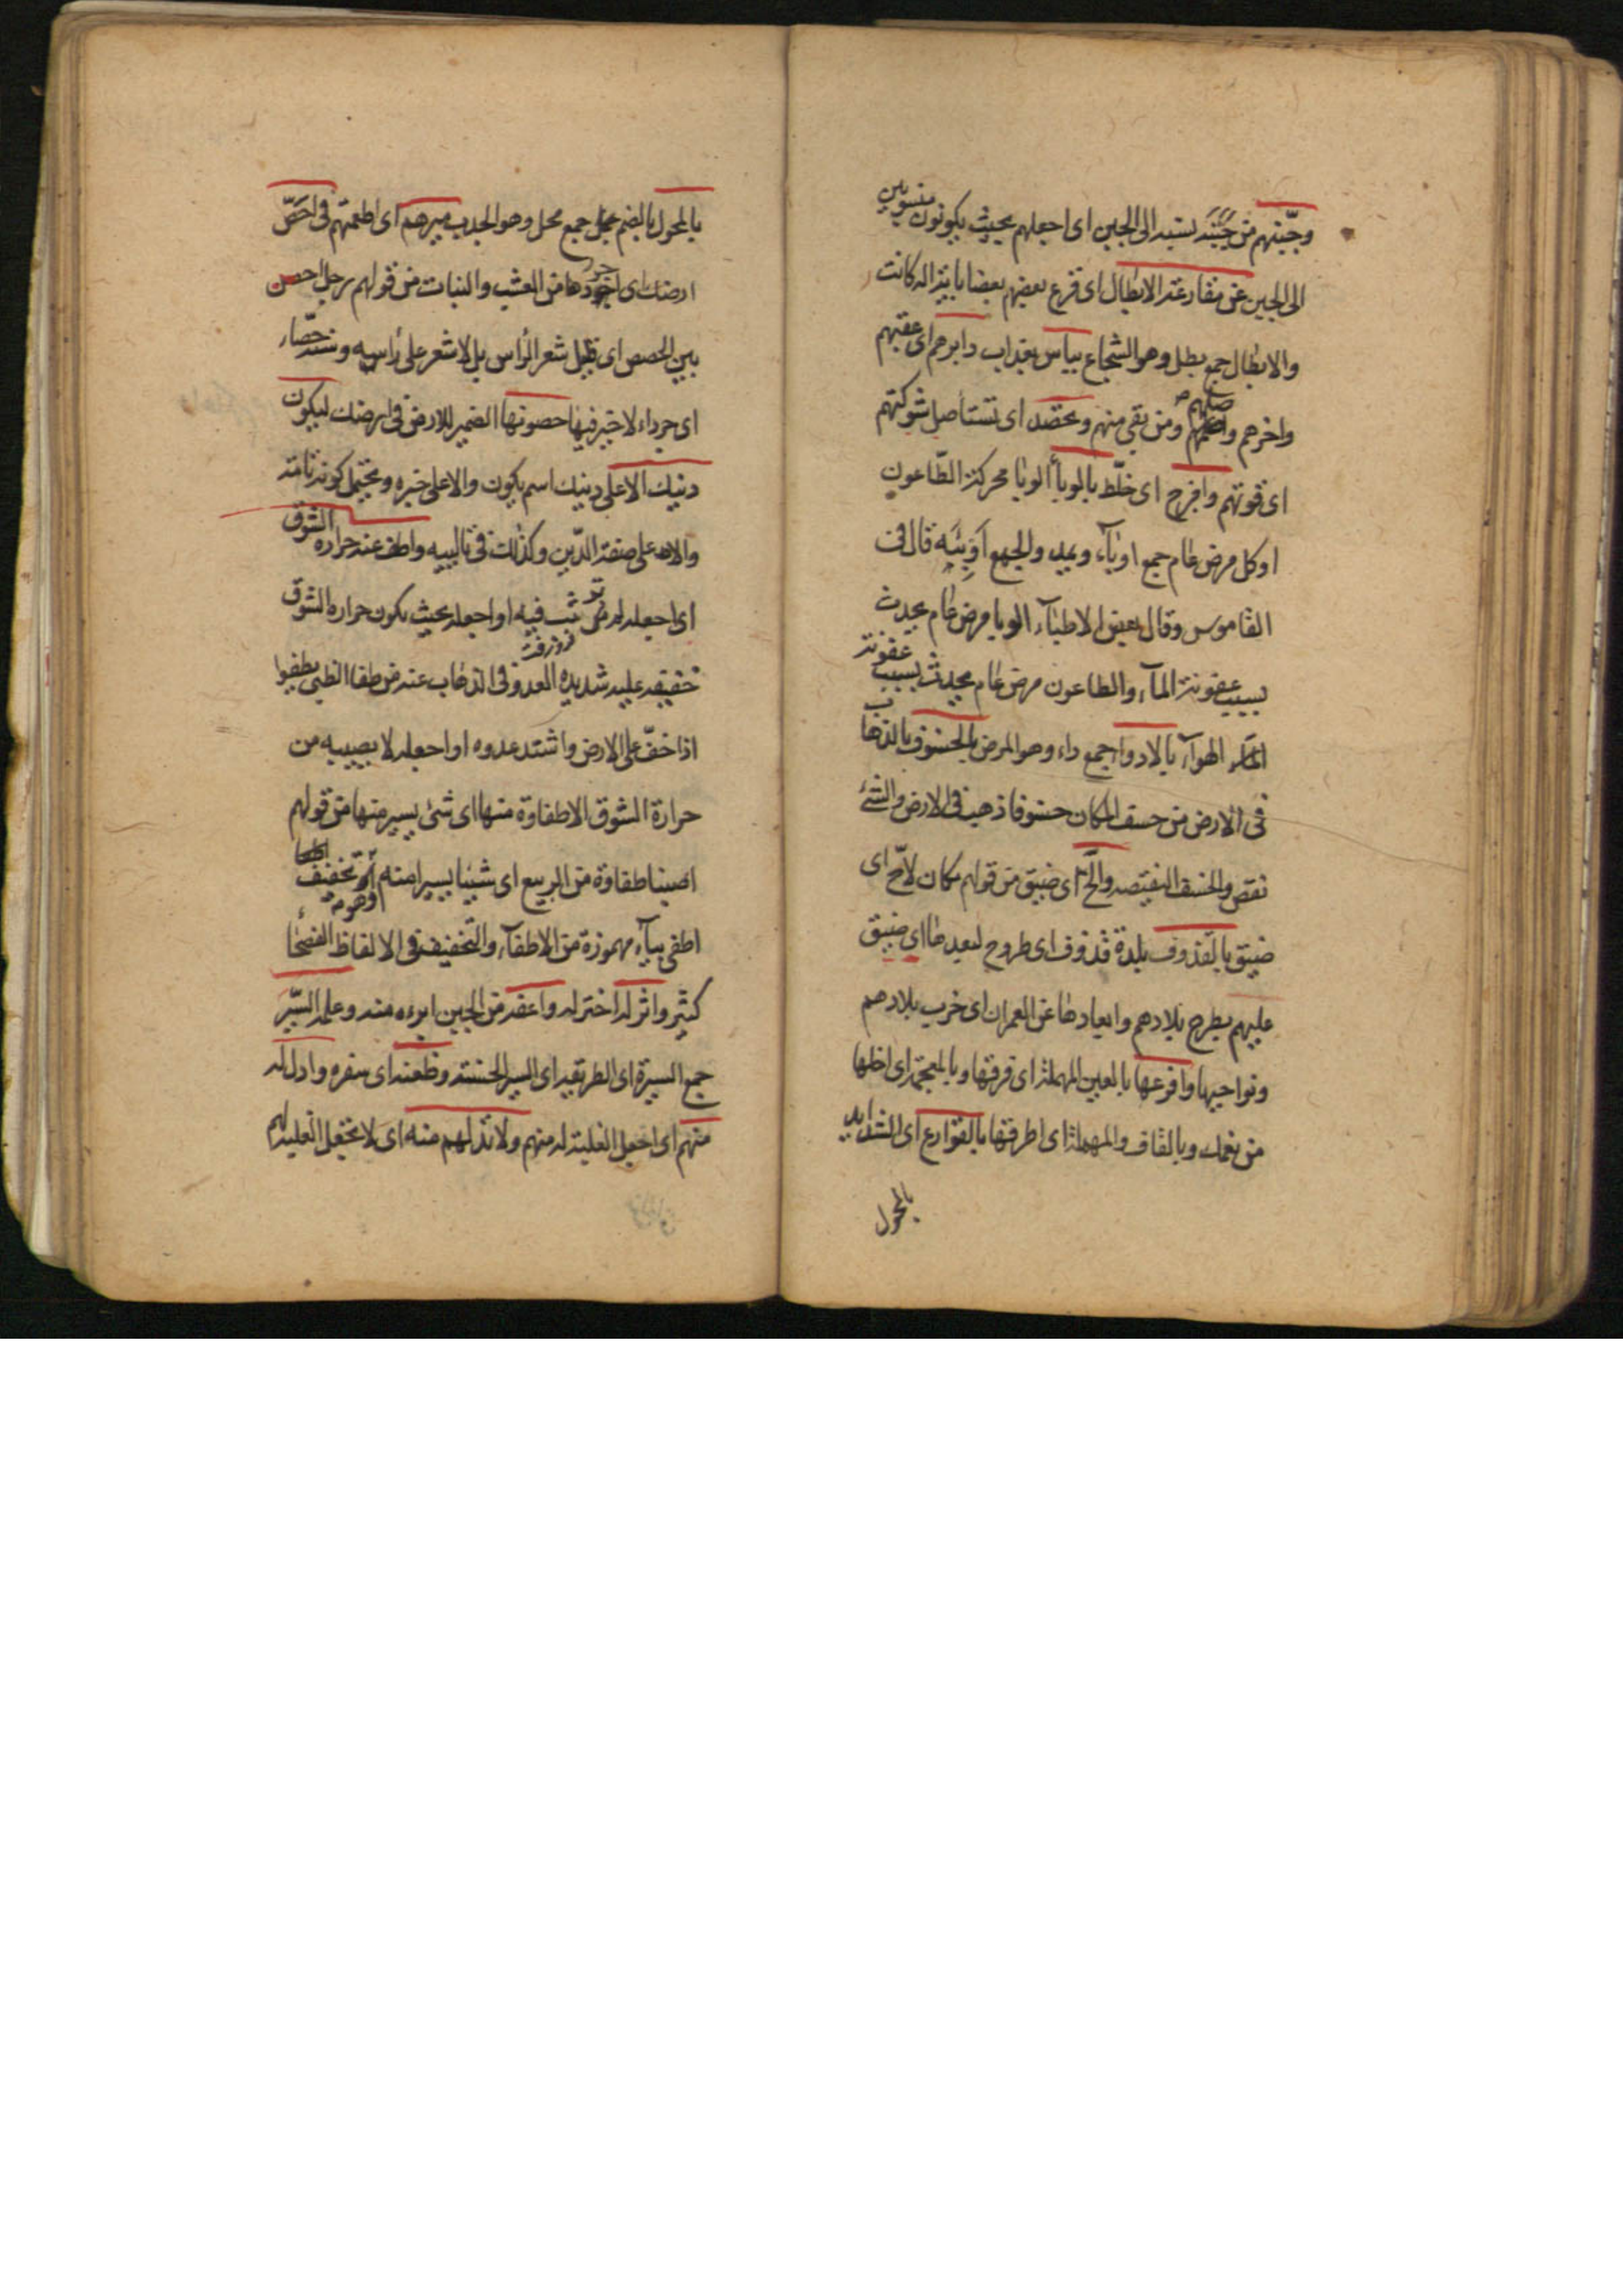 وجبنهم من جبنه نسبه الى الجبن اى اجعلهم بحيث يكونون منسوبين
الى الجبن عن مقارعة الابطال اى قرع بعضهم بعضا بايه اله كانت
والابطال جمع بطل وهو الشجاع بباس بعذاب دابرهم اى عقبهم
واخرهم واصلهم ومن بقى منهم وتحصد اى تستأصل شوكتهم
اى قوتهم وامزج اى خلّط بالوبأ الوبا محركة الطّاعون
او كل مرض عام جمع اوبآء ويمد والجمع اوبئه قال فى
القاموس وقال بعض الاطبآء الوبا مرض عام يحدث
بسبب عفونة المآء والطاعون مرض عام يحدث بسبب عفونة
الهوآء بالادوا جمع داء وهو المرض بالخسوف بالذهاب
فى الارض من خسف المكان خسوفا ذهب فى الارض والشئ
نقص والخسف النقيصه والحّ اى ضيق من قولهم مكان لاحّ اى
ضيق بالقذوف بلدة قذوف اى طروح لبعدها اى ضيق
عليهم بطرح بلادهم وابعادها عن العمران اى خرب بلادهم
ونواحيها وافرعها بالعين المهملة اى فرقها وبالمعجمه اى اخلها
من نعمك وبالقاف والمهملة اى اطرقها بالقوارع اى الشدايد
بالمحول
بالمحول بالضم جمع محل وهو الجدب ميرهم اى اطعمتهم فى احصّ
ارضك اى اجردها من العشب والنبات من قولهم رجل احص
بين الحصص اى قليل شعر الرأس بل لا شعر على رأسه وسنه حصّاء
اى جرداء لا خير فيها حصونها الضمير للارض فى ارضك ليكون
دينك الاعلى دينك اسم يكون والاعلى خبره ويحتمل كونه تامه
والاعلى صفة الدّين وكذلك فى تاليه واطف عنه حراره الشوق
اى اجعله لم تؤثر فيه او اجعله بحيث يكون حراره الشوق
خفيفه عليه شديده العدو فى الذهاب عنه من طفا الظبى يطفوا
اذا خفّ على الارض واشتد عدوه او اجعله لا يصيبه من
حرارة الشوق الا طفاوة منها اى شئ يسير منها من قولهم
اصبنا طفاوة من الربيع اى شيئا يسيرا منه او تخفيف
اطفى بيآء مهموزة من الاطفآء والتخفيف فى الالفاظ الفصحا
كثير واثر له اختر له واعفه من الجبن ابرءه منه وعلمه السّير
جمع السيرة اى الطريقه اى السير الحسنة وظعنه اى سفره وادل له
منهم اى اجعل الغلبة له منهم ولا تدلهم منه اى لا تجعل الغلبة لهم